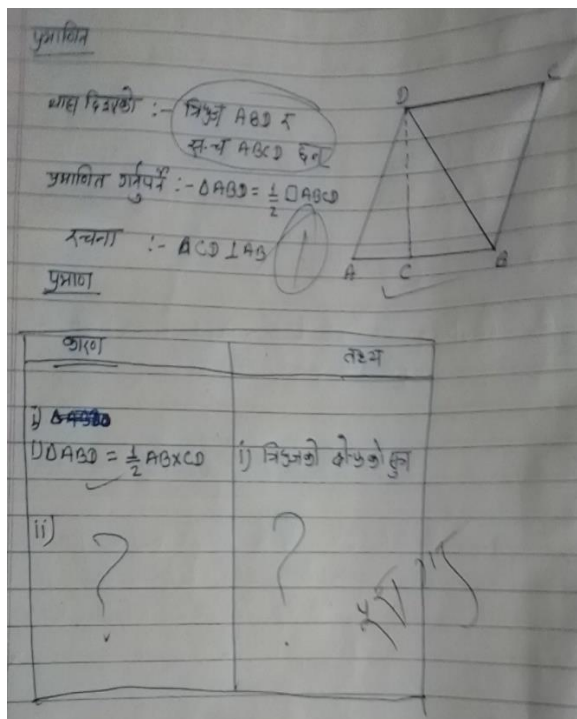 प्रमाणित
थाहा दिइएको :- त्रिभुज ABD र
स.च ABCD छन्
प्रमाणित गर्नुपर्ने :- ΔABD = 1/2 □ABCD
रचना :- CD ⊥ AB
प्रमाण
D
C
A
C
B
कारण
तथ्य
i)
i) ΔABD = 1/2 AB×CD
i) त्रिभुजको सुत्र
ii)
?
?